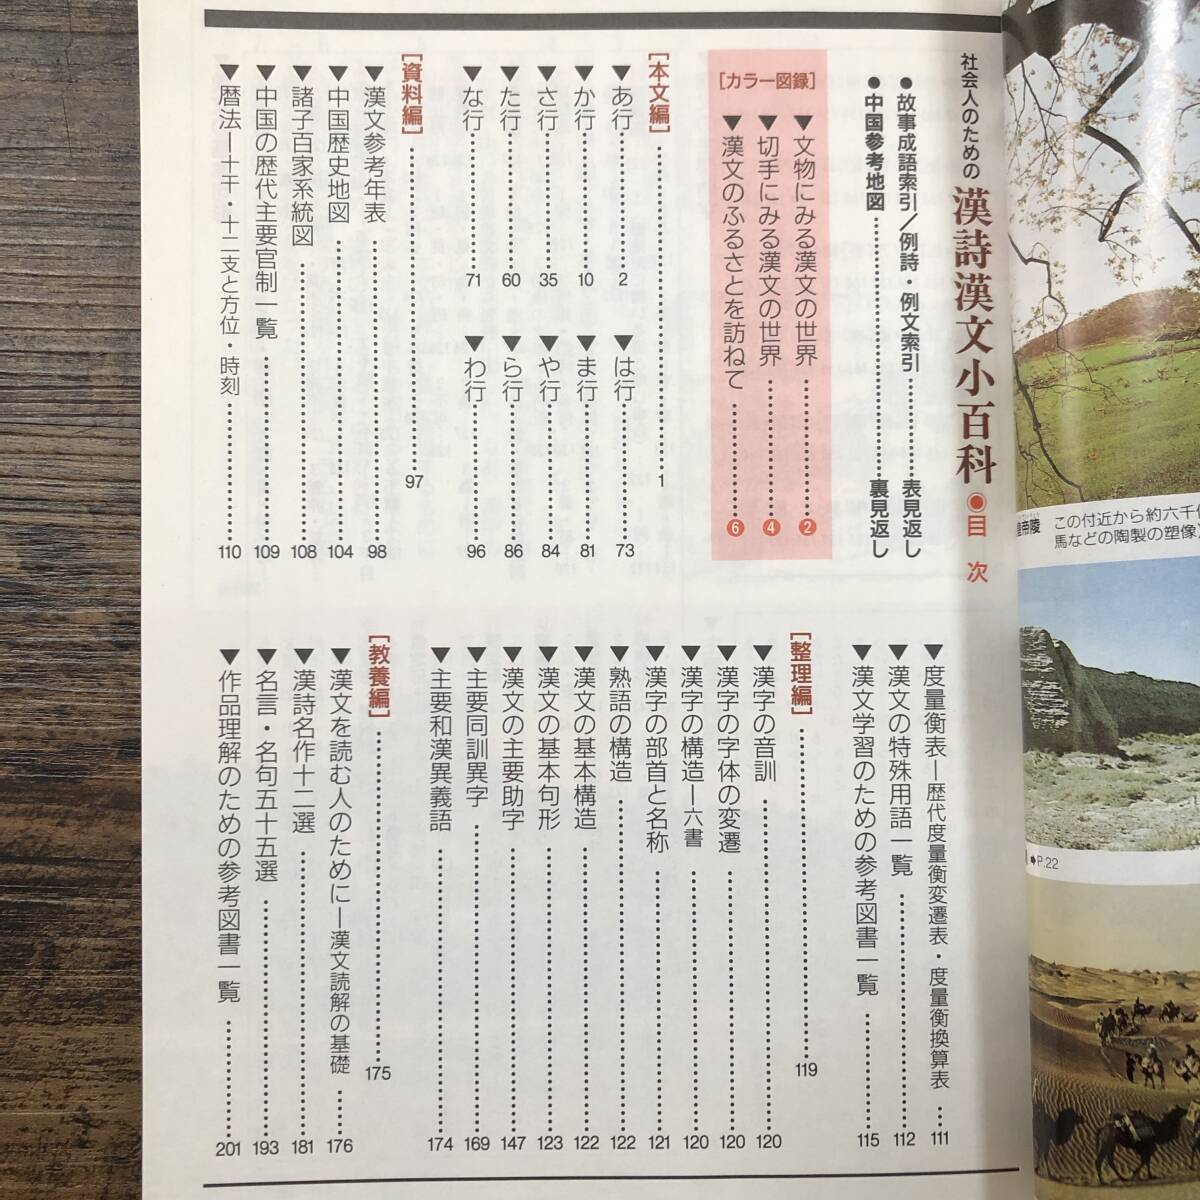 社会人のための 漢詩漢文小百科 ◉目次
●故事成語索引／例詩・例文索引……表見返し
●中国参考地図……裏見返し
［カラー図録］
▼文物にみる漢文の世界……❷
▼切手にみる漢文の世界……❹
▼漢文のふるさとを訪ねて……❻
［本文編］……1
▼あ行……2
▼か行……10
▼さ行……35
▼た行……60
▼な行……71
▼は行……73
▼ま行……81
▼や行……84
▼ら行……86
▼わ行……96
［資料編］……97
▼漢文参考年表……98
▼中国歴史地図……104
▼諸子百家系統図……108
▼中国の歴代主要官制一覧……109
▼暦法―十干・十二支と方位・時刻……110
▼度量衡表―歴代度量衡変遷表・度量衡換算表……111
▼漢文の特殊用語一覧……112
▼漢文学習のための参考図書一覧……115
［整理編］……119
▼漢字の音訓……120
▼漢字の字体の変遷……120
▼漢字の構造―六書……120
▼漢字の部首と名称……121
▼熟語の構造……122
▼漢文の基本構造……122
▼漢文の基本句形……123
▼漢文の主要助字……147
▼主要同訓異字……169
▼主要和漢異義語……174
［教養編］……175
▼漢文を読む人のために―漢文読解の基礎……176
▼漢詩名作十二選……181
▼名言・名句五十五選……193
▼作品理解のための参考図書一覧……201
帝陵 この付近から約六千
馬などの陶製の塑像
P.22